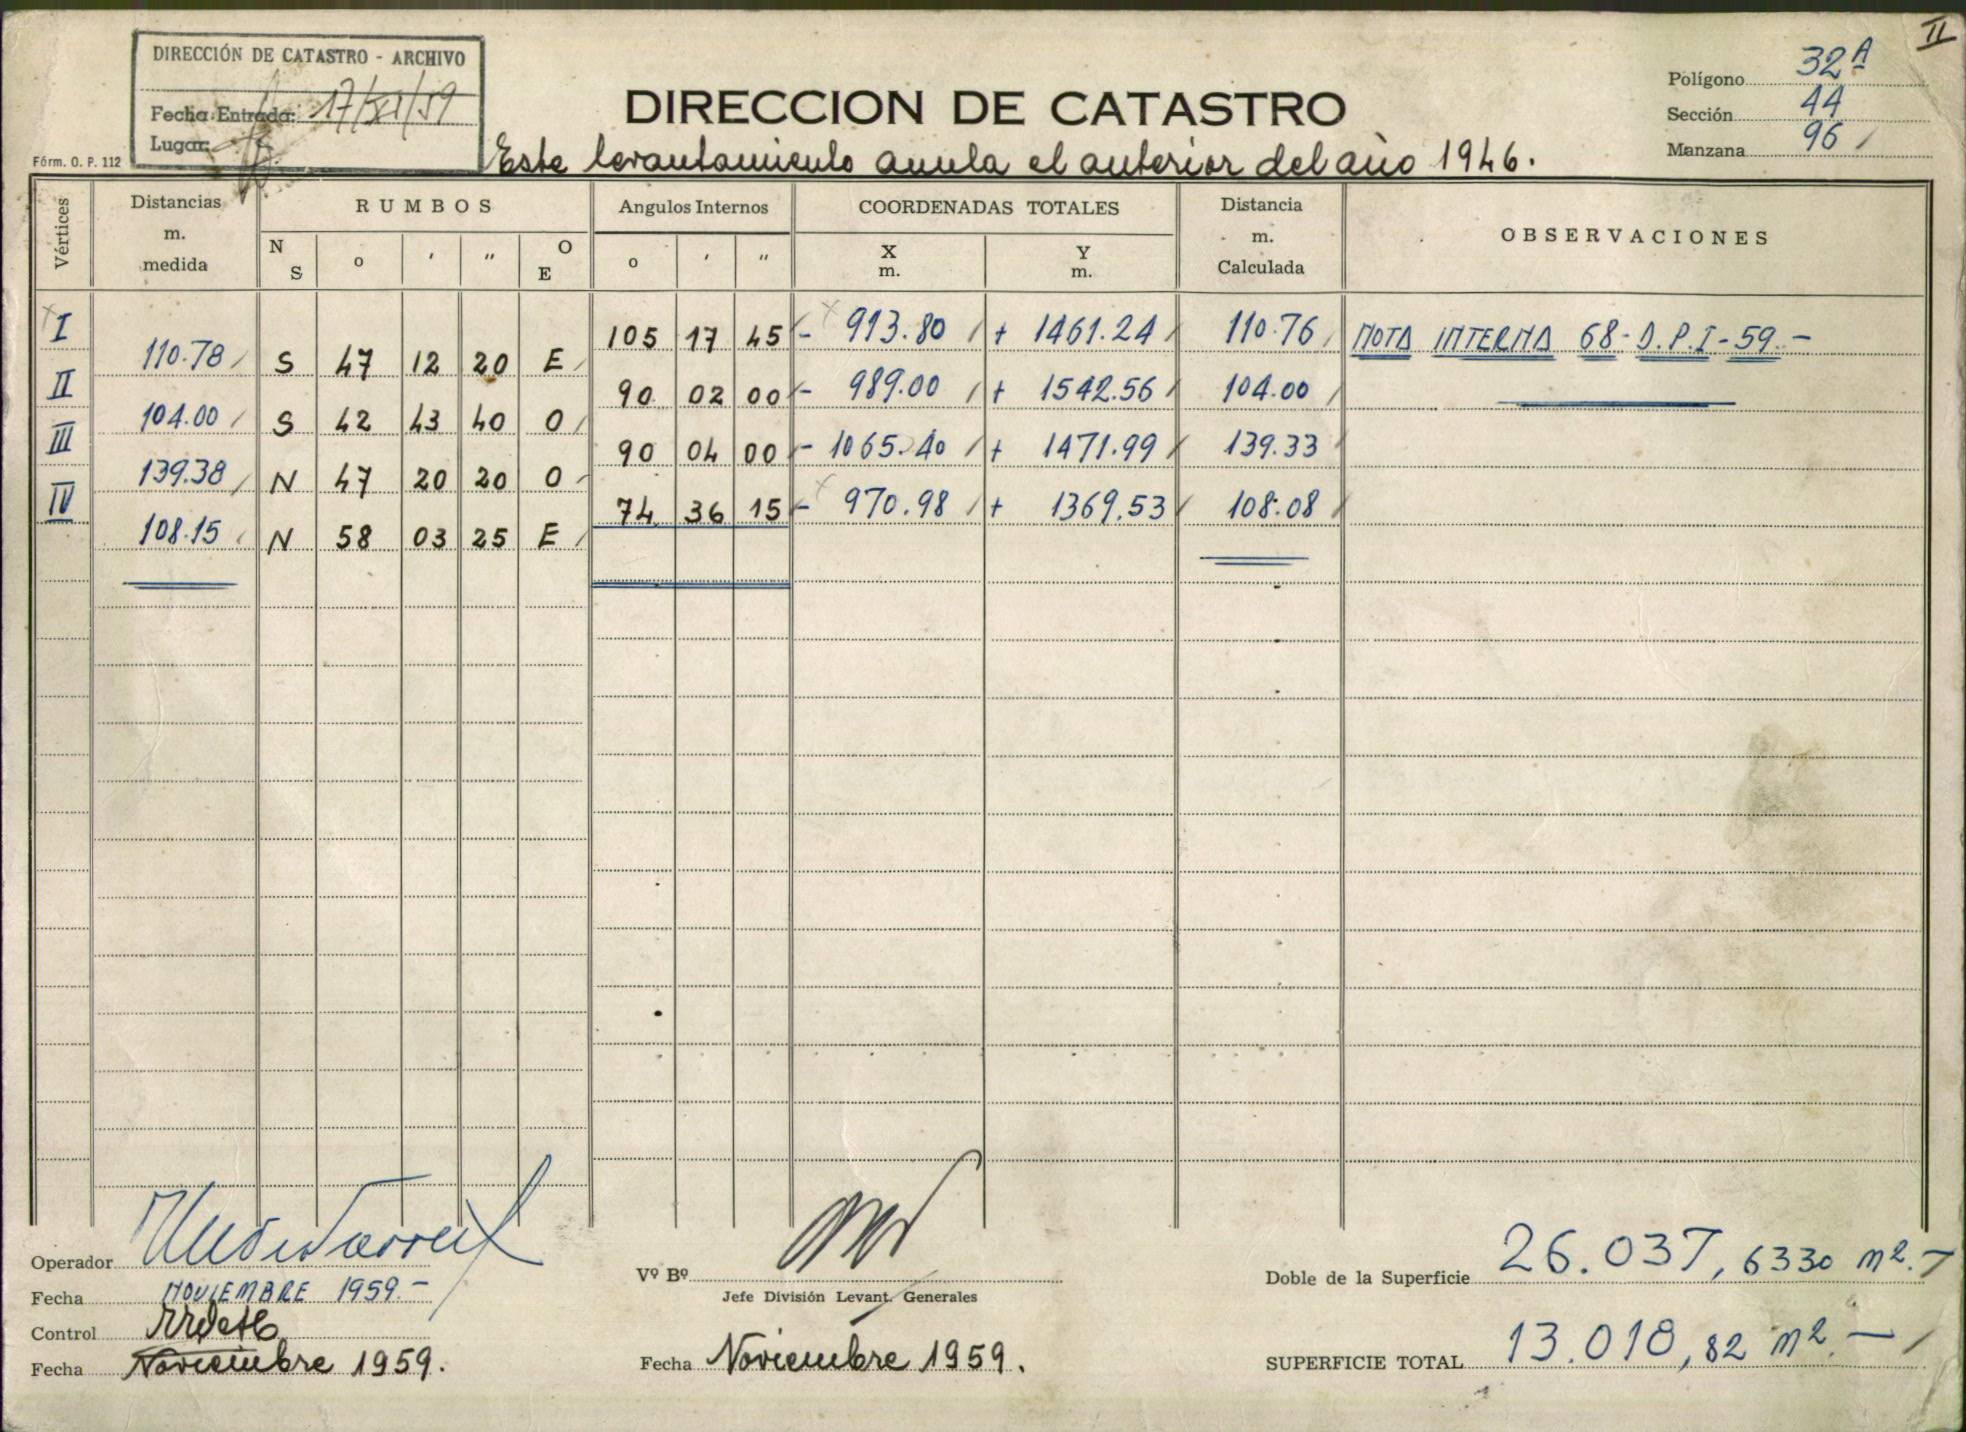 II
DIRECCIÓN DE CATASTRO - ARCHIVO
Fecha Entrada: 17/XII/59
Lugar:
Fórm. O. P. 112
DIRECCION DE CATASTRO
Este levantamiento anula el anterior del año 1946.
Polígono 32A
Sección 44
Manzana 96
Vértices
Distancias m. medida
RUMBOS
N S o ' " O E
Angulos Internos
o ' "
COORDENADAS TOTALES
X m. Y m.
Distancia m. Calculada
OBSERVACIONES
I 105 17 45 - 913.80 + 1461.24 110.76 NOTA INTERNA 68-D.P.I-59.-
110.78 S 47 12 20 E
II 90 02 00 - 989.00 + 1542.56 104.00
104.00 S 42 43 40 O
III 90 04 00 - 1065.40 + 1471.99 139.33
139.38 N 47 20 20 O
IV 74 36 15 - 970.98 + 1369.53 108.08
108.15 N 58 03 25 E
Operador
Fecha NOVIEMBRE 1959.-
Control
Fecha Noviembre 1959.
Vº Bº
Jefe División Levant. Generales
Fecha Noviembre 1959.
Doble de la Superficie 26.037,6330 m2.-
SUPERFICIE TOTAL 13.018,82 m2.-